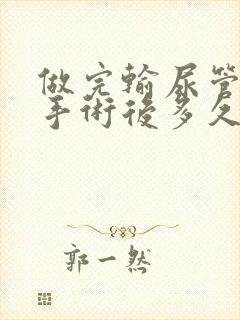 做完輸尿管
手術後多久
郭一然